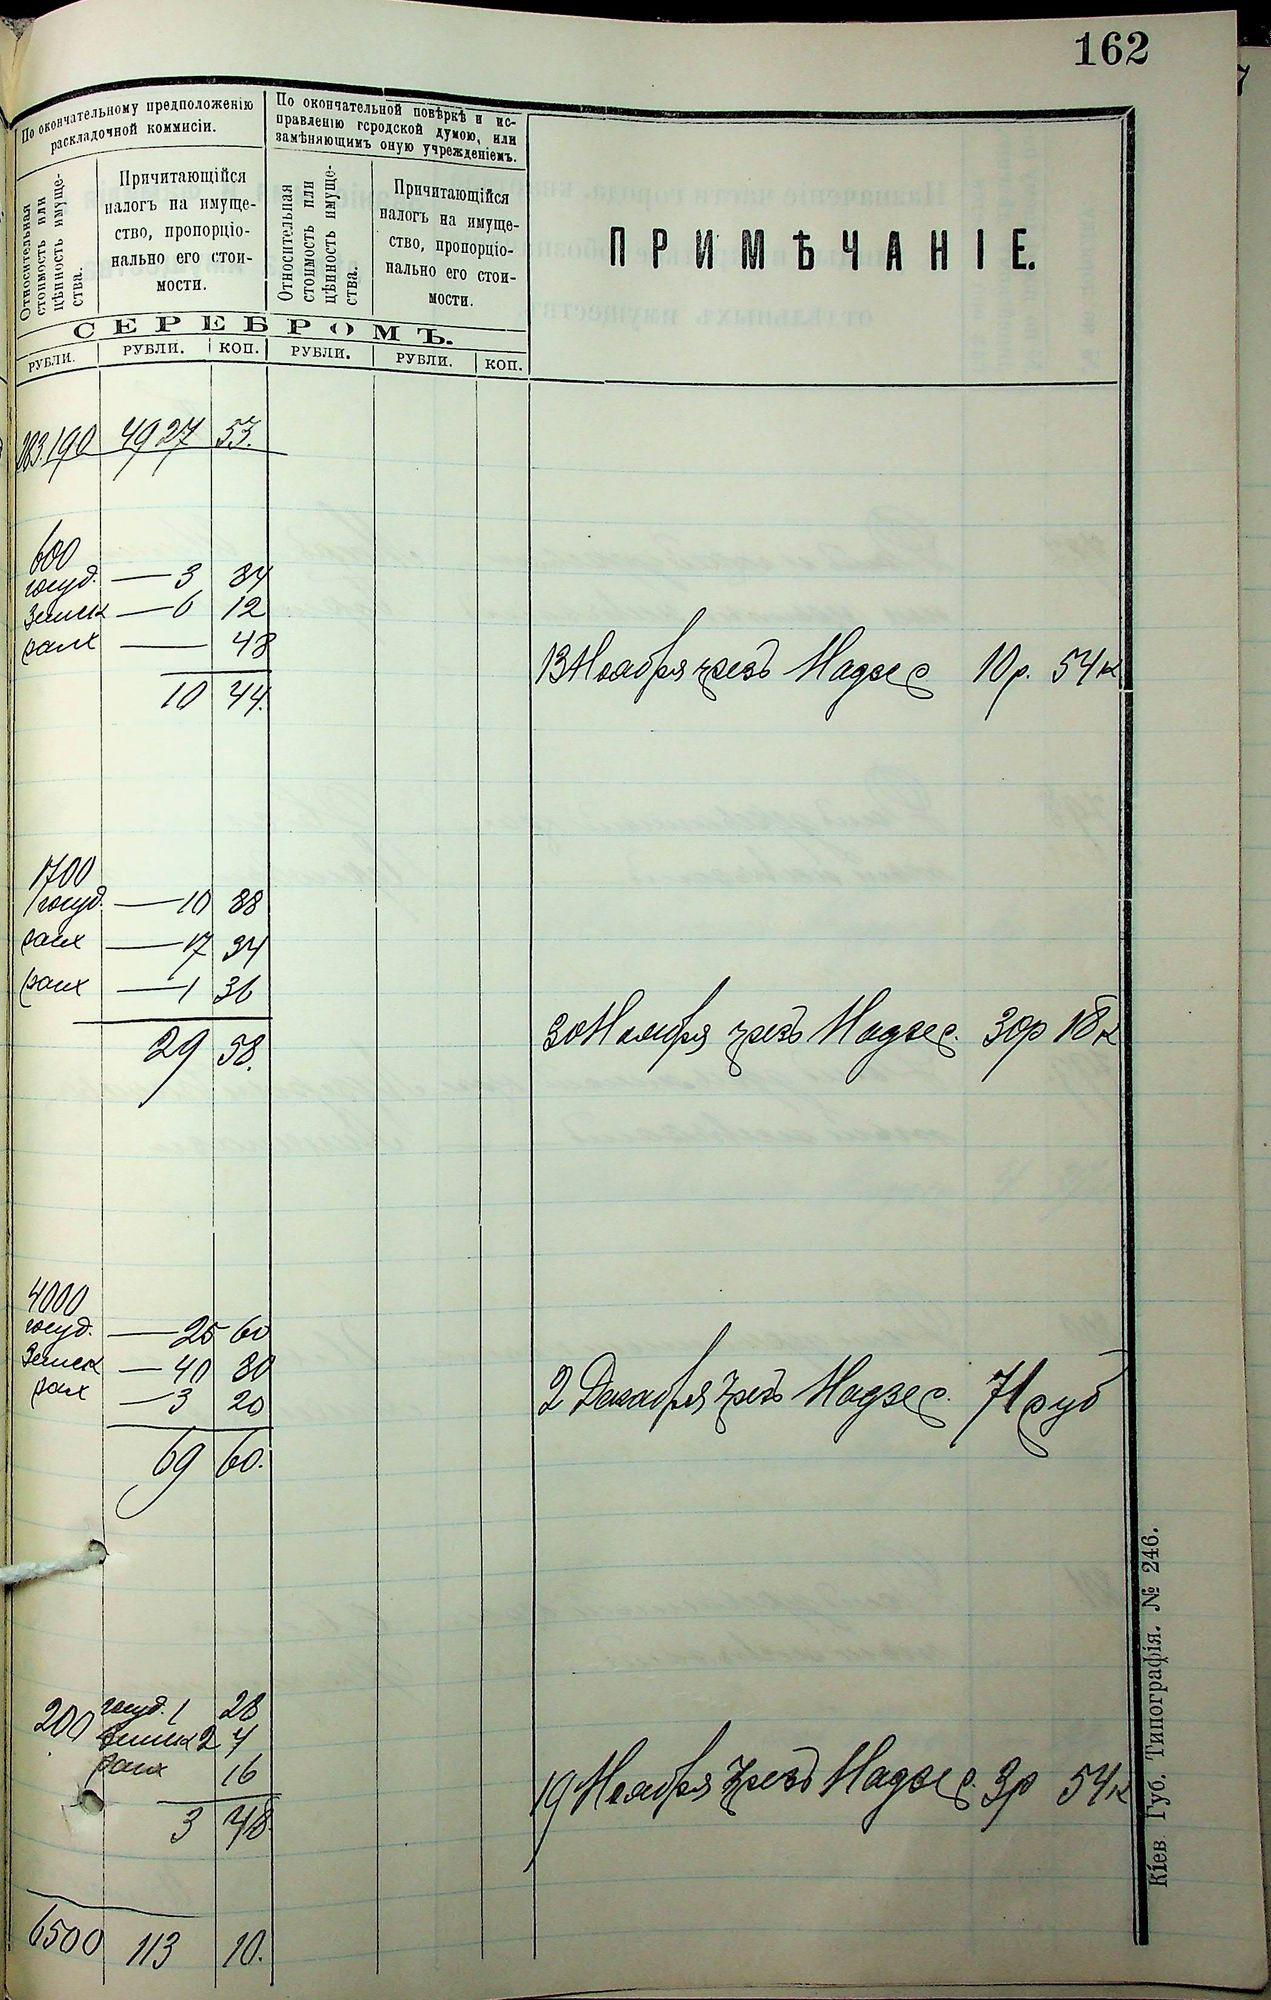 162
По окончательному предположенію
раскладочной коммисіи.
По окончательной повѣркѣ и ис-
правленію городской думою, или
замѣняющимъ оную учрежденіемъ.
ПРИМѢЧАНІЕ.
Относительная
стоимость или
цѣнность имуще-
ства.
Причитающійся
налогъ на имуще-
ство, пропорціо-
нально его стои-
мости.
Относительная
стоимость или
цѣнность имуще-
ства.
Причитающійся
налогъ на имуще-
ство, пропорціо-
нально его стои-
мости.
СЕРЕБРОМЪ.
РУБЛИ. РУБЛИ. КОП. РУБЛИ. РУБЛИ. КОП.
283.190 4927 53.
600
госуд. — 3 84
Земск — 6 12
— 48
10 44.
13 Ноября чрезъ Надзес 10 р. 54 к
1700
госуд. — 10 88
— 17 34
— 1 36
29 58.
30 Ноября чрезъ Надзес. 30 р 18 к
4000
госуд. — 25 60
Земск — 40 80
— 3 20
69 60.
2 Декабря чрезъ Надзес. 71 руб
200 госуд. 1 28
Земск 2 4
16
3 48.
19 Ноября чрезъ Надзес. 3 р 54 к
6500 113 10.
Кіев Губ. Типографія. № 246.